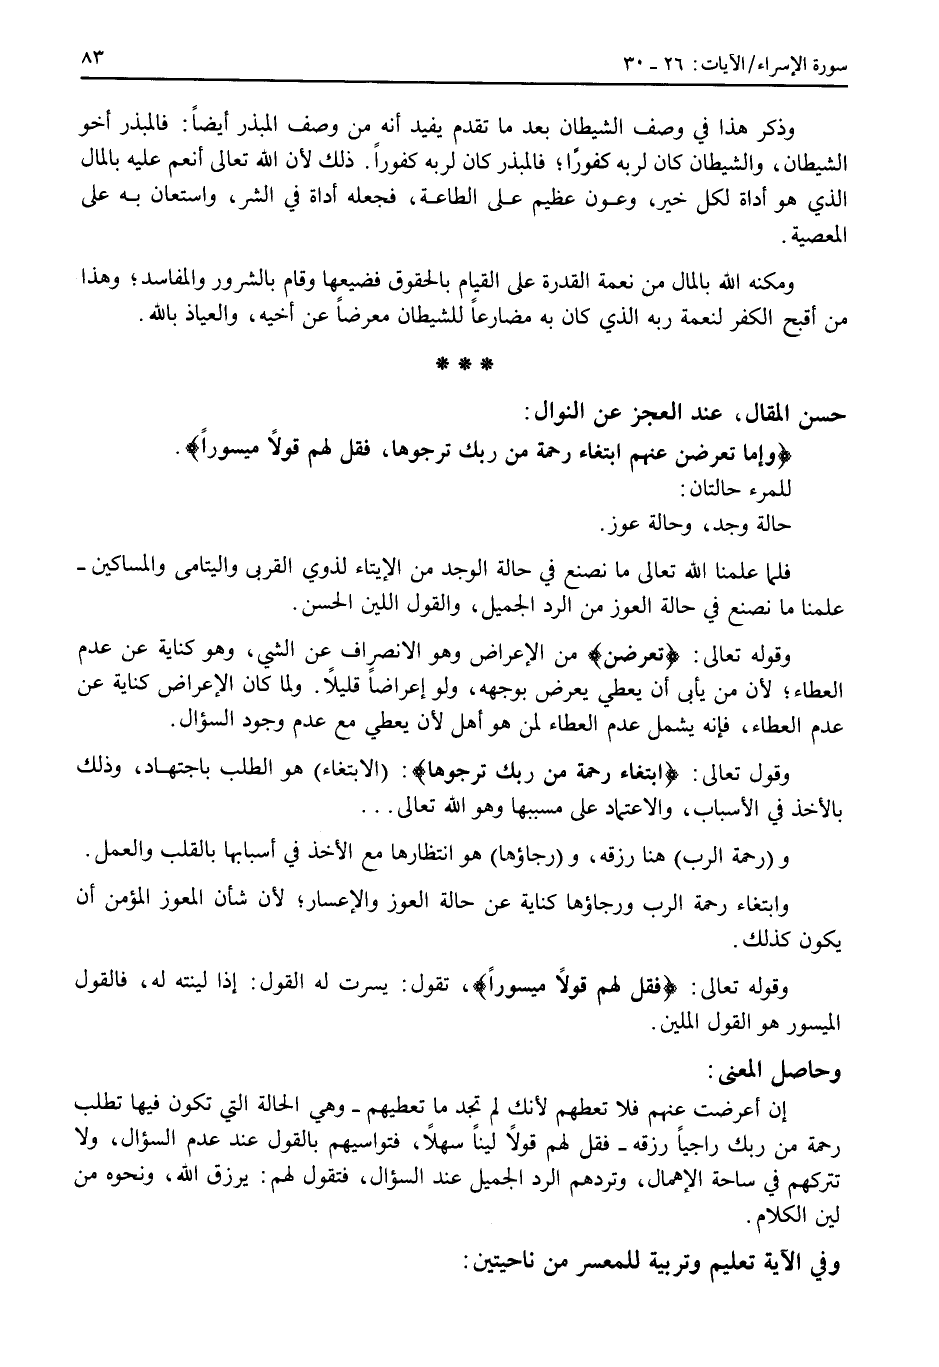 سورة الإسراء/الآيات: ٢٦ ـ ٣٠
٨٣
وذكر هذا في وصف الشيطان بعد ما تقدم يفيد أنه من وصف المبذر أيضاً: فالمبذر أخو
الشيطان، والشيطان كان لربه كفورًا؛ فالمبذر كان لربه كفوراً. ذلك لأن الله تعالى أنعم عليه بالمال
الذي هو أداة لكل خير، وعون عظيم على الطاعة، فجعله أداة في الشر، واستعان به على
المعصية.
ومكنه الله بالمال من نعمة القدرة على القيام بالحقوق فضيعها وقام بالشرور والمفاسد؛ وهذا
من أقبح الكفر لنعمة ربه الذي كان به مضارعاً للشيطان معرضاً عن أخيه، والعياذ بالله.
* * *
حسن المقال، عند العجز عن النوال:
﴿وإما تعرضن عنهم ابتغاء رحمة من ربك ترجوها، فقل لهم قولاً ميسوراً﴾.
للمرء حالتان:
حالة وجد، وحالة عوز.
فلما علمنا الله تعالى ما نصنع في حالة الوجد من الإيتاء لذوي القربى واليتامى والمساكين ـ
علمنا ما نصنع في حالة العوز من الرد الجميل، والقول اللين الحسن.
وقوله تعالى: ﴿تعرضن﴾ من الإعراض وهو الانصراف عن الشي، وهو كناية عن عدم
العطاء؛ لأن من يأبى أن يعطي يعرض بوجهه، ولو إعراضاً قليلاً. ولما كان الإعراض كناية عن
عدم العطاء، فإنه يشمل عدم العطاء لمن هو أهل لأن يعطي مع عدم وجود السؤال.
وقول تعالى: ﴿ابتغاء رحمة من ربك ترجوها﴾: (الابتغاء) هو الطلب باجتهاد، وذلك
بالأخذ في الأسباب، والاعتماد على مسببها وهو الله تعالى...
و (رحمة الرب) هنا رزقه، و (رجاؤها) هو انتظارها مع الأخذ في أسبابها بالقلب والعمل.
وابتغاء رحمة الرب ورجاؤها كناية عن حالة العوز والإعسار؛ لأن شأن المعوز المؤمن أن
يكون كذلك.
وقوله تعالى: ﴿فقل لهم قولاً ميسوراً﴾، تقول: يسرت له القول: إذا لينته له، فالقول
الميسور هو القول الملين.
وحاصل المعنى:
إن أعرضت عنهم فلا تعطهم لأنك لم تجد ما تعطيهم ـ وهي الحالة التي تكون فيها تطلب
رحمة من ربك راجياً رزقه ـ فقل لهم قولاً ليناً سهلاً، فتواسيهم بالقول عند عدم السؤال، ولا
تتركهم في ساحة الإهمال، وتردهم الرد الجميل عند السؤال، فتقول لهم: يرزق الله، ونحوه من
لين الكلام.
وفي الآية تعليم وتربية للمعسر من ناحيتين: